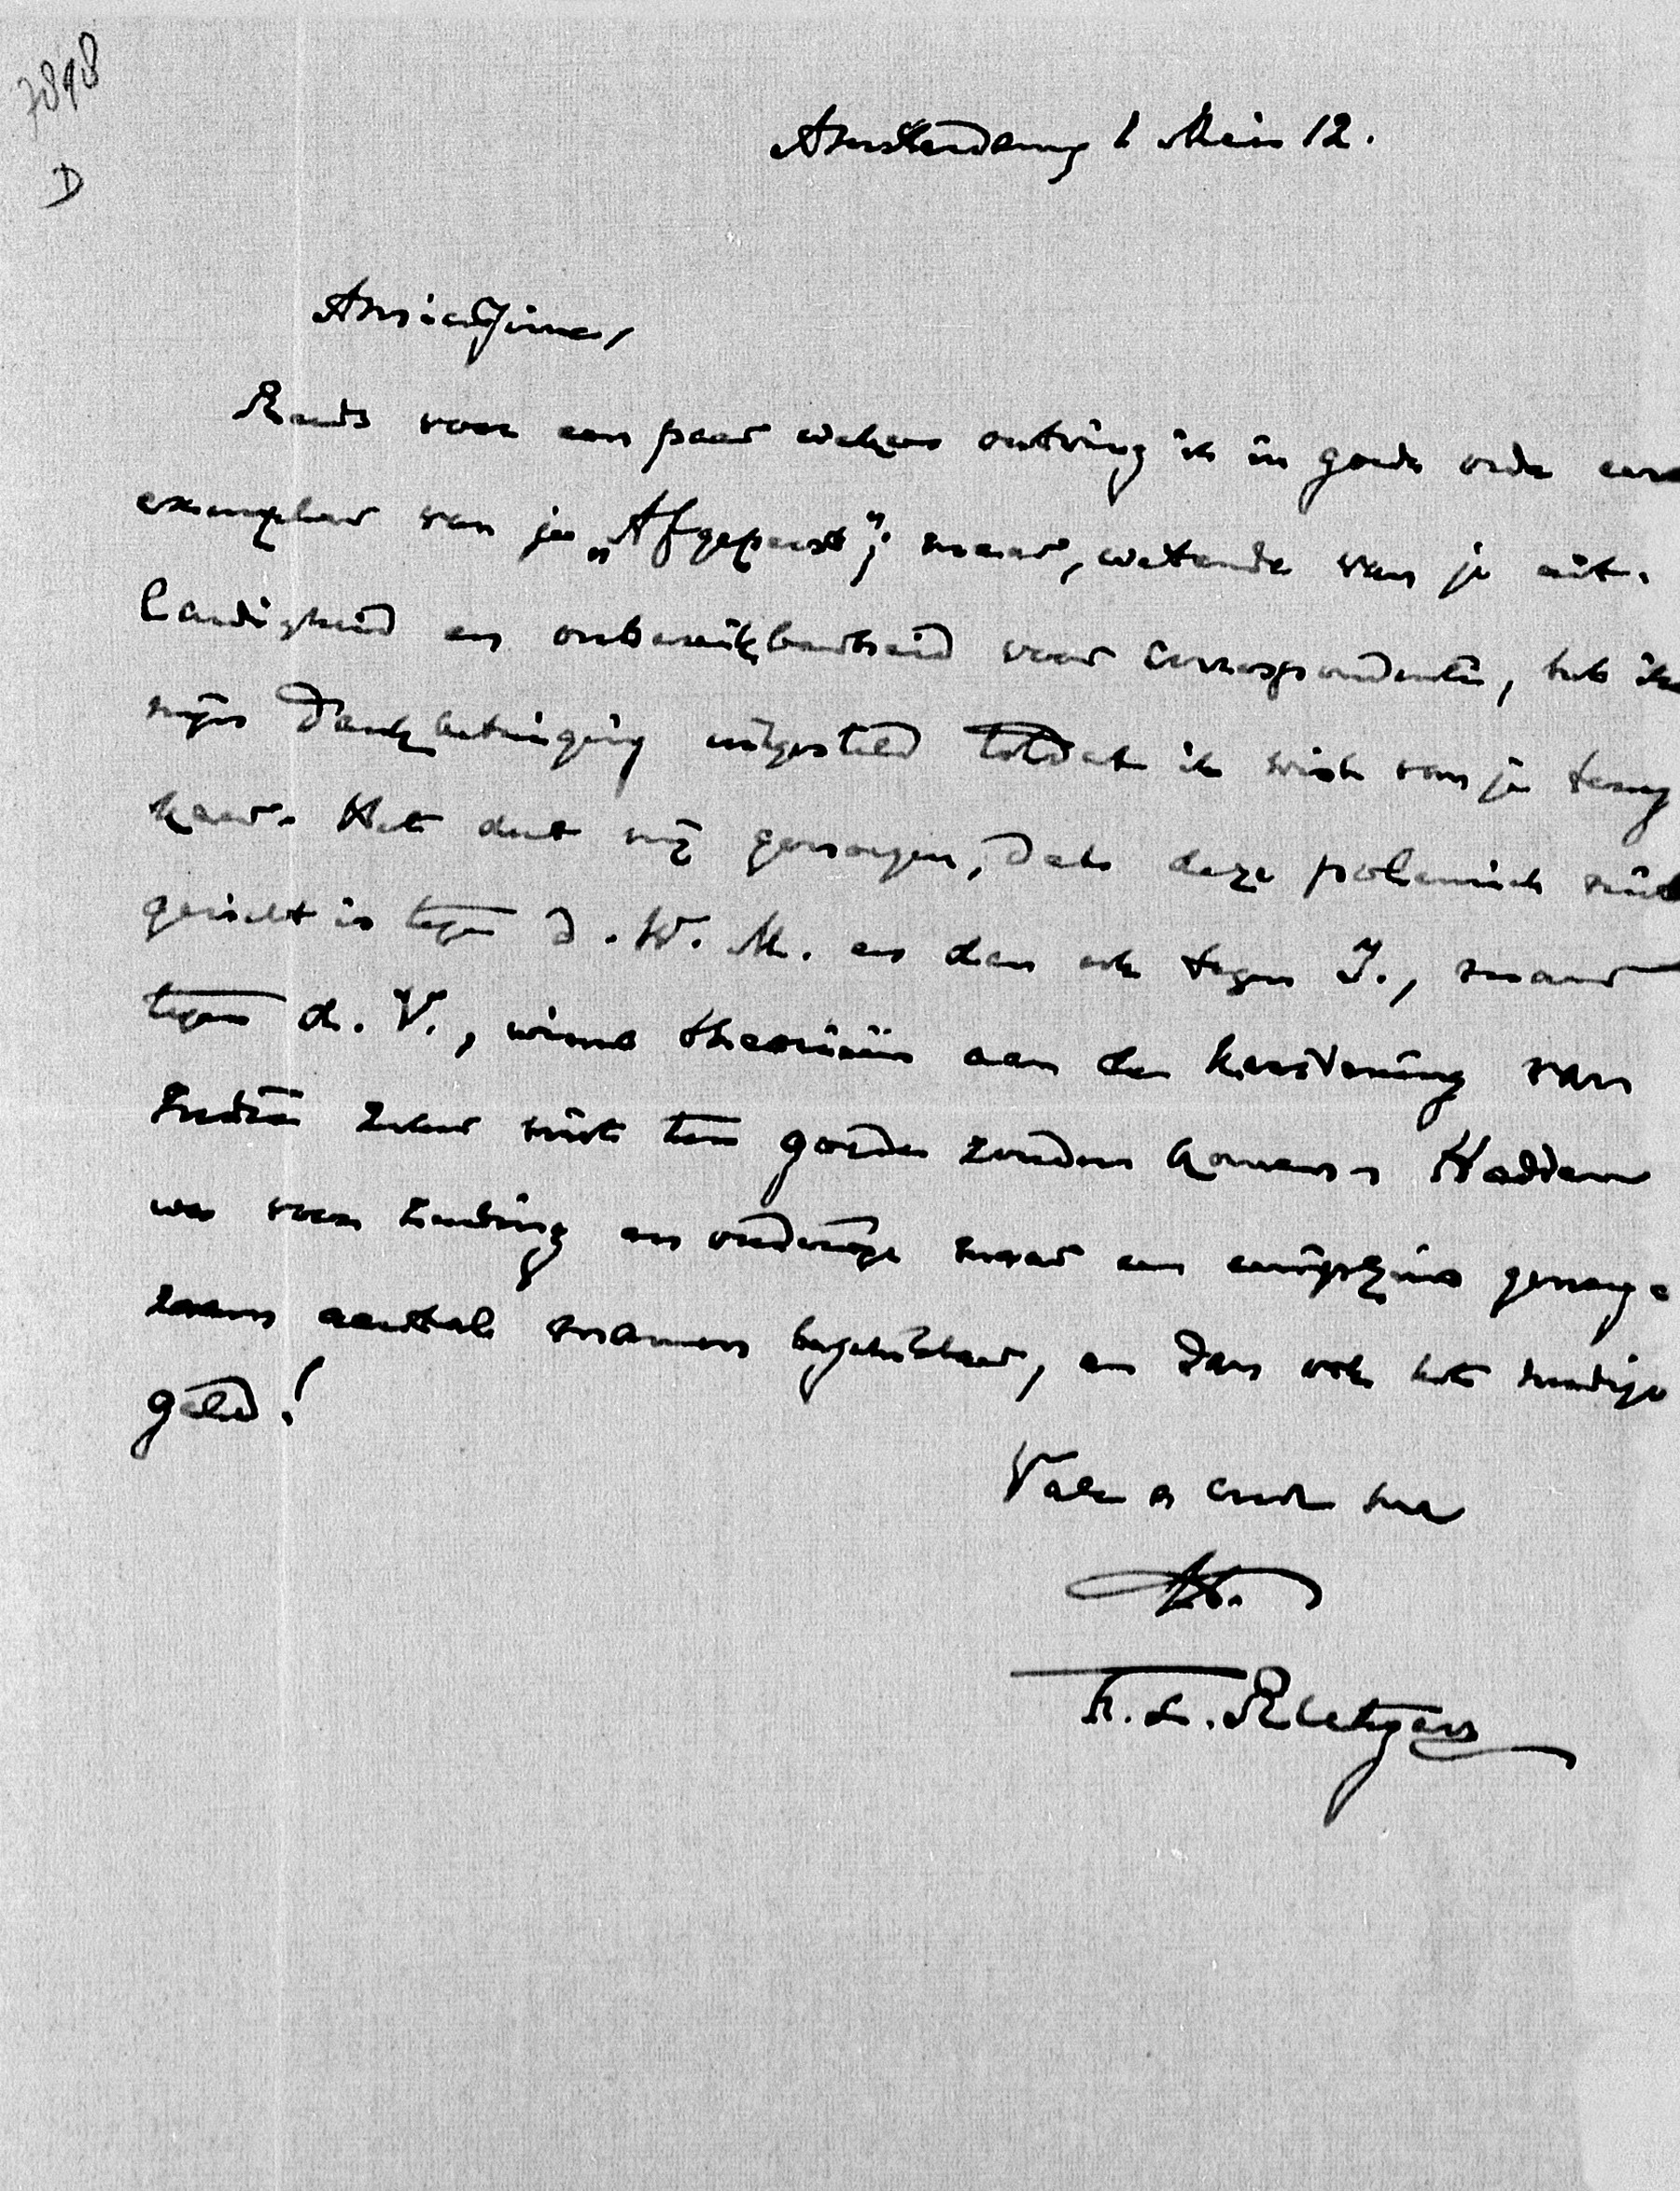 7898
D
Amsterdam, 1 Mei 12.
Amicissime,
Reeds voor een paar weken ontving ik in goede orde een
exemplaar van je „Afgeperst”; maar, wetende van je uit-
landigheid en onbereikbaarheid voor correspondentie, heb ik
mijn dankbetuiging uitgesteld totdat ik wist van je terug
keer. Het deed mij genoegen, dat deze polemiek niet
gericht is tegen d. W. M. en dan ook tegen I., maar
tegen d. V., wiens theorieën aan de kerstening van
Indië zeker niet ten goede zouden komen. Hadden
we voor zending en onderwijs maar een enigszins genoeg-
zaam aantal mannen beschikbaar, en dan ook het noodige
geld!
Vale
F. L. Rutgers